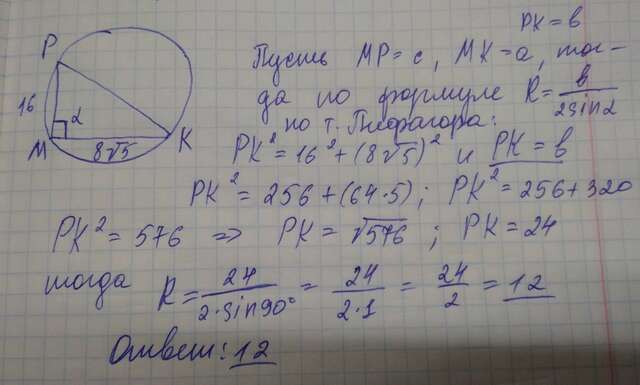 PK = b
Пусть MP = c, MK = a, тог-
да по формуле R = b/2sinα
по т. Пифагора:
PK² = 16² + (8√5)² и PK = b
PK² = 256 + (64·5); PK² = 256 + 320
PK² = 576 => PK = √576; PK = 24
тогда R = 24/2·sin90° = 24/2·1 = 24/2 = 12
Ответ: 12
P
16
α
M
8√5
K